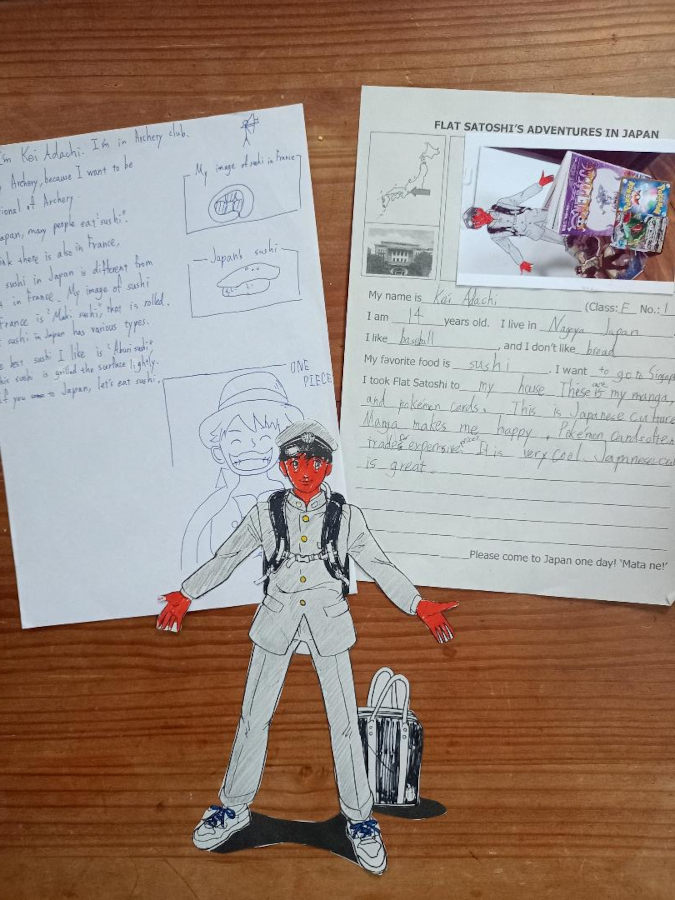 I'm Kei Adachi. I'm in Archery club.
Archery, because I want to be
of Archery
many people eat "sushi".
there is also in France,
sushi in Japan is different from
in france. My image of sushi
"Maki sushi" that is rolled.
sushi in Japan has various types.
best sushi I like is "Aburi sushi"
sushi is grilled the surface lightly.
if you come to Japan, let's eat sushi.
My image of sushi in France
Japan's sushi
ONE
PIECE
FLAT SATOSHI'S ADVENTURES IN JAPAN
My name is Kei Adachi (Class: F No.: 1
I am 14 years old. I live in Nagoya Japan
I like baseball, and I don't like bread
My favorite food is sushi. I want to go to
I took Flat Satoshi to my house. These are my manga,
and pokemon cards. This is Japanese culture
Manga makes me happy. Pokemon cards
trades expensive. It is very cool Japanese
is great.
Please come to Japan one day! 'Mata ne!'